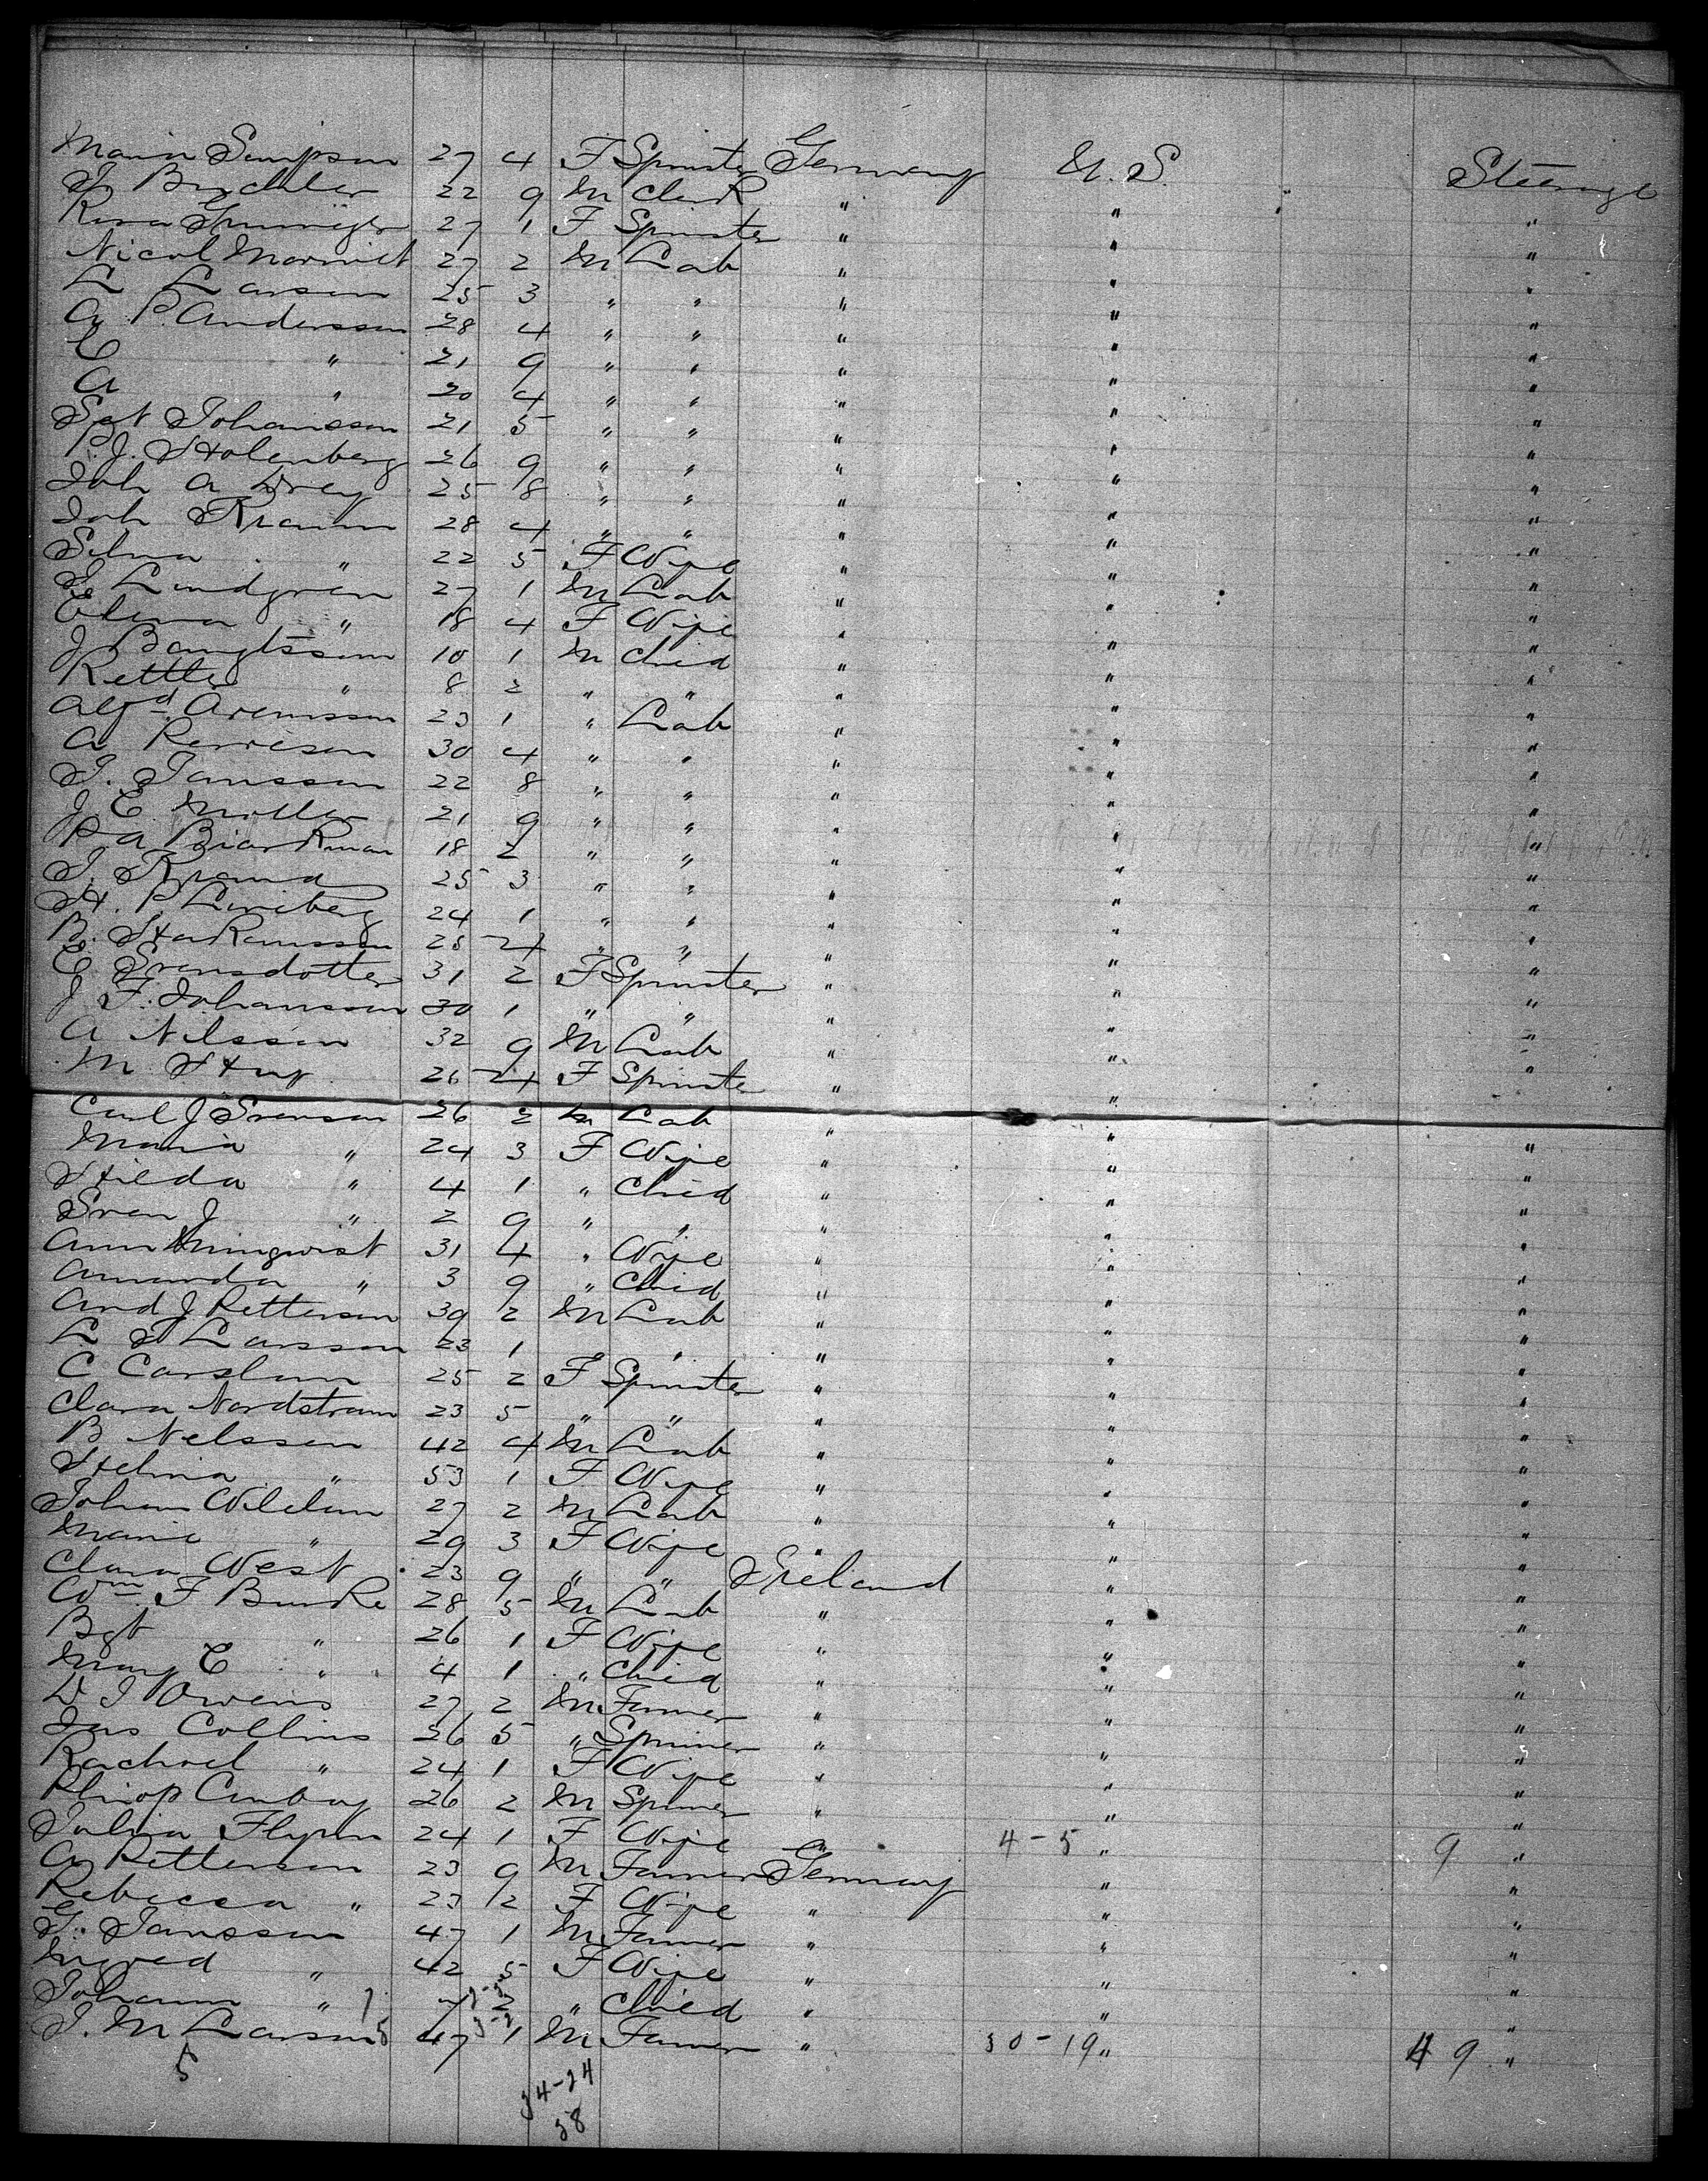 Maria Simpson 27 4 F Spinster Germany U.S. Steerage
J Buchler 22 9 M Clerk " " "
Rosa 27 1 F Spinster " " "
Nicol 27 2 M Lab " " "
L Larsen 25 3 " " " " "
A P. Andersson 28 4 " " " " "
E " 21 9 " " " " "
A " 20 4 " " " " "
Sgt Johansson 21 5 " " " " "
P. J. Holenberg 26 9 " " " " "
Joh A Drey 25 8 " " " " "
Joh Kramm 28 4 " " " " "
Selma " 22 5 F Wife " " "
J Lindgren 27 1 M Lab " " "
Elena " 18 4 F Wife " " "
J Bangtsson 10 1 M Child " " "
" 8 2 " " " " "
Alfd 23 1 " Lab " " "
A 30 4 " " " " "
J. Jansson 22 8 " " " " "
J E Moller 21 9 " " " " "
P A Biorkman 18 2 " " " " "
J. 25 3 " " " " "
H. P 24 1 " " " " "
B. Hakansson 25 4 " " " " "
E Svensdotter 31 2 F Spinster " " "
J F. Johansson 30 1 " " " " "
A Nilsson 32 9 M Lab " " "
M 26 4 F Spinster " " "
Carl J Svenson 26 2 M Lab " " "
Maria " 24 3 F Wife " " "
Hilda " 4 1 " Child " " "
Sven J " 2 9 " " " " "
Ann 31 4 " Wife " " "
Amanda " 3 9 " Child " " "
And J Petterson 39 2 M Lab " " "
L J Larsson 23 1 " " " "
C Carslum 25 2 F Spinster " " "
Clara Nordstram 23 5 " " " " "
B Nelssen 42 4 M Lab " " "
Helina " 53 1 F Wife " " "
Johan 27 2 M Lab " " "
Marie " 29 3 F Wife " " "
Clara West 23 9 " " Ireland " "
Wm F Burke 28 5 M Lab " " "
Bgt " 26 1 F Wife " " "
Mary E " 4 1 " Child " " "
D J Owens 27 2 M Farmer " " "
Jas Collins 26 5 " Spinner " " "
Rachael " 24 1 F Wife " " "
26 2 M Spinner " " "
Julia Flynn 24 1 F Wife " 4-5 " 9 "
A Petterson 23 9 M Farmer Germany " "
Rebecca " 23 2 F Wife " " "
G. Jansson 47 1 M Farmer " " "
Ingred " 42 5 F Wife " " "
Johann " 7 2 " Child " " "
J. M Larson 47 1 M Farmer " 30-19 " 49 "
5 34-24
38